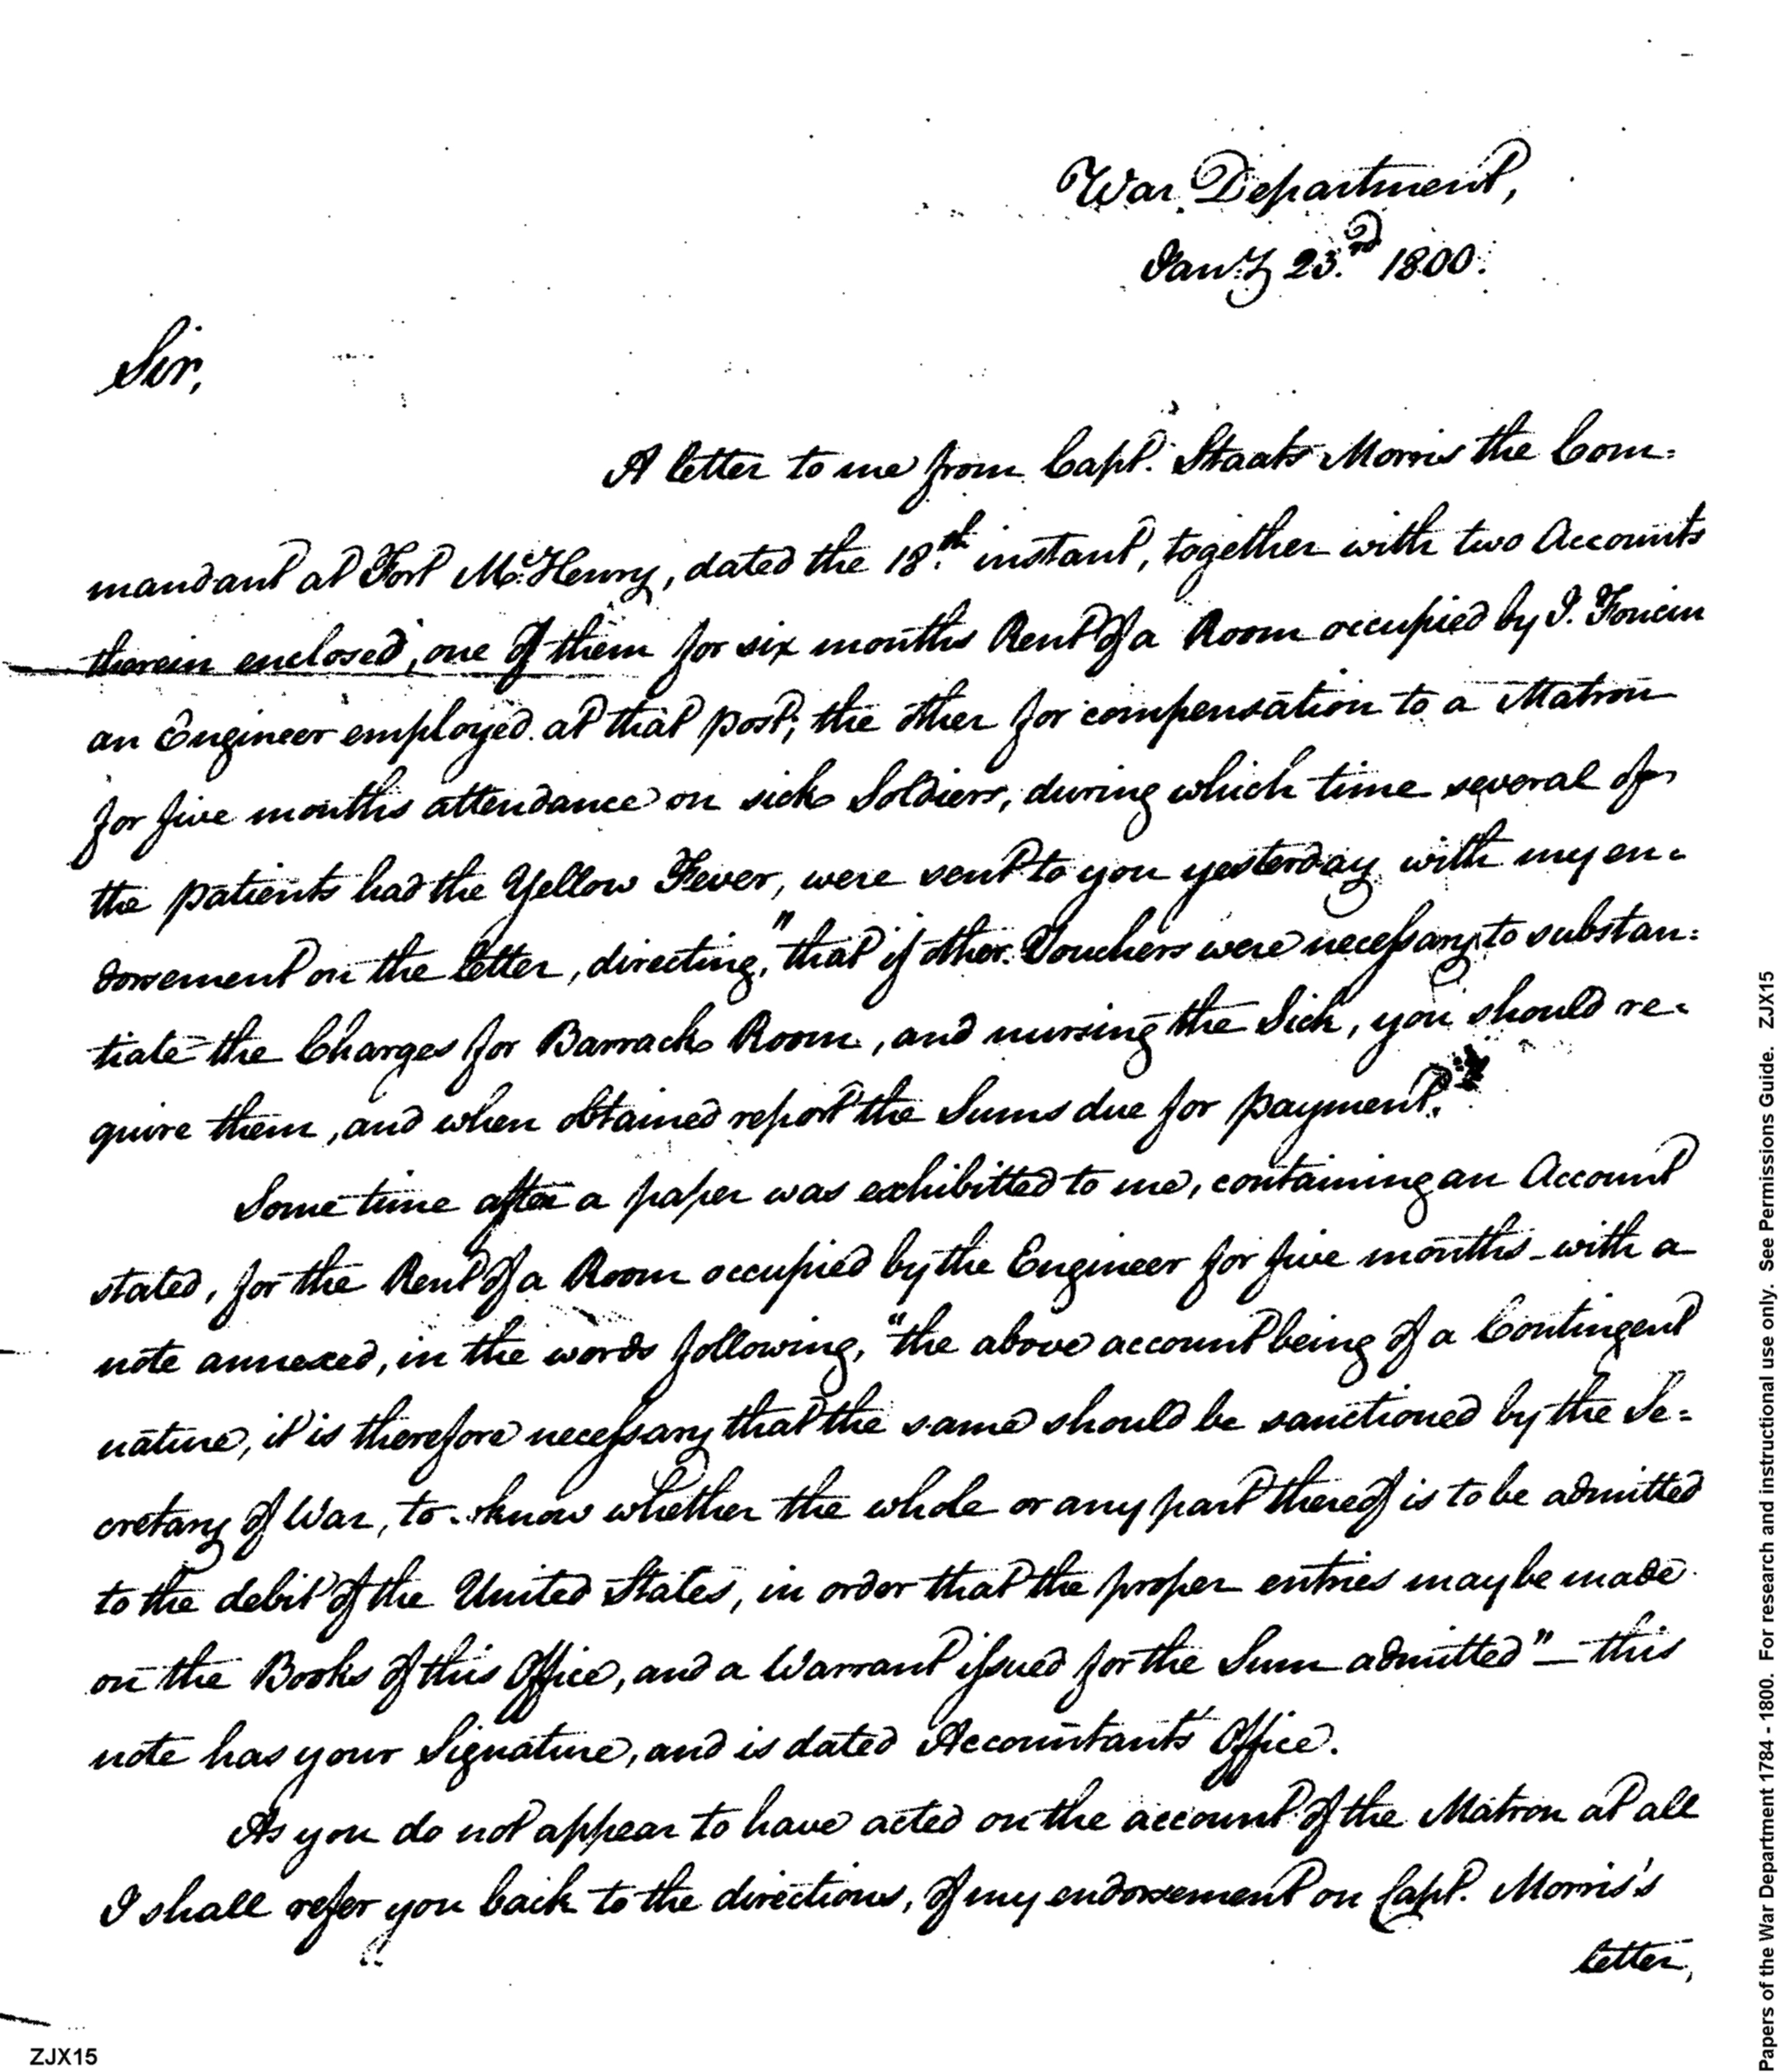 War Department,
Jany. 23.rd 1800.
Sir,
A letter to me from Capt. Staats Morris the Com=
mandant at Fort Mc.Henry, dated the 18.th instant, together with two Accounts
therein enclosed, one of them for six months Rent of a Room occupied by I. Foncin
an Engineer employed at that post; the other for compensation to a Matron
for five months attendance on sick Soldiers, during which time several of
the patients had the Yellow Fever, were sent to you yesterday with my en=
dorsement on the letter, directing, "that if other Vouchers were necessary to substan=
tiate the Charges for Barrack Room, and nursing the Sick, you should re=
quire them, and when obtained report the Sums due for payment."
Some time after a paper was exhibitted to me, containing an Account
stated, for the Rent of a Room occupied by the Engineer for five months - with a
note annexed, in the words following, "the above account being of a Contingent
nature, it is therefore necessary that the same should be sanctioned by the Se=
cretary of War, to know whether the whole or any part thereof is to be admitted
to the debit of the United States, in order that the proper entries may be made
on the Books of this Office, and a Warrant issued for the Sum admitted" — this
note has your Signature, and is dated Accountant's Office.
As you do not appear to have acted on the account of the Matron at all
I shall refer you back to the directions, of my endorsement on Capt. Morris's
letter,
ZJX15
Papers of the War Department 1784 - 1800. For research and instructional use only. See Permissions Guide. ZJX15